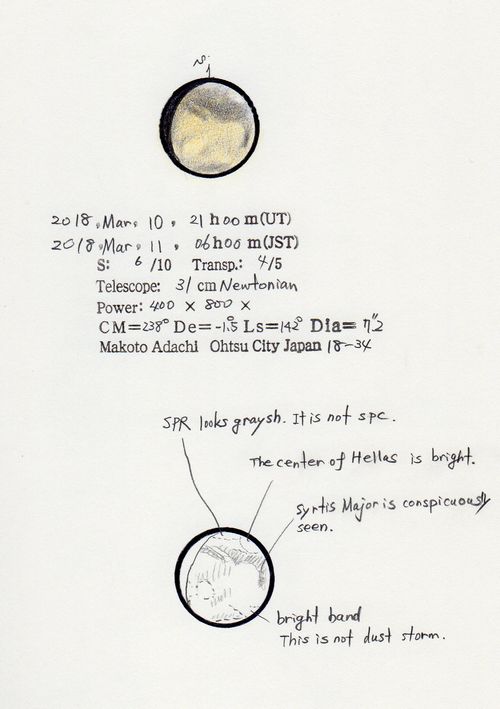 S.
2018, Mar, 10, 21 h 00 m(UT)
2018, Mar, 11, 06 h 00 m(JST)
S: 6 /10 Transp.: 4/5
Telescope: 31 cm Newtonian
Power: 400 × 800 ×
CM=238° De=-1.5° Ls=142° Dia=7"2
Makoto Adachi Ohtsu City Japan 18-34
SPR looks graysh. It is not spc.
The center of Hellas is bright.
Syrtis Major is conspicuously
seen.
bright band
This is not dust storm.